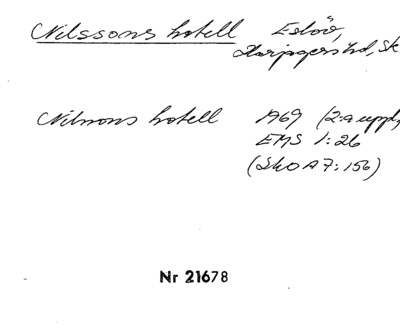 Nilssons hotell Eslöv,
Harjagers hd, Sk
Nilssons hotell 1969 (2:a uppl,
EMS 1:26
(SkOA7:156)
Nr 21678